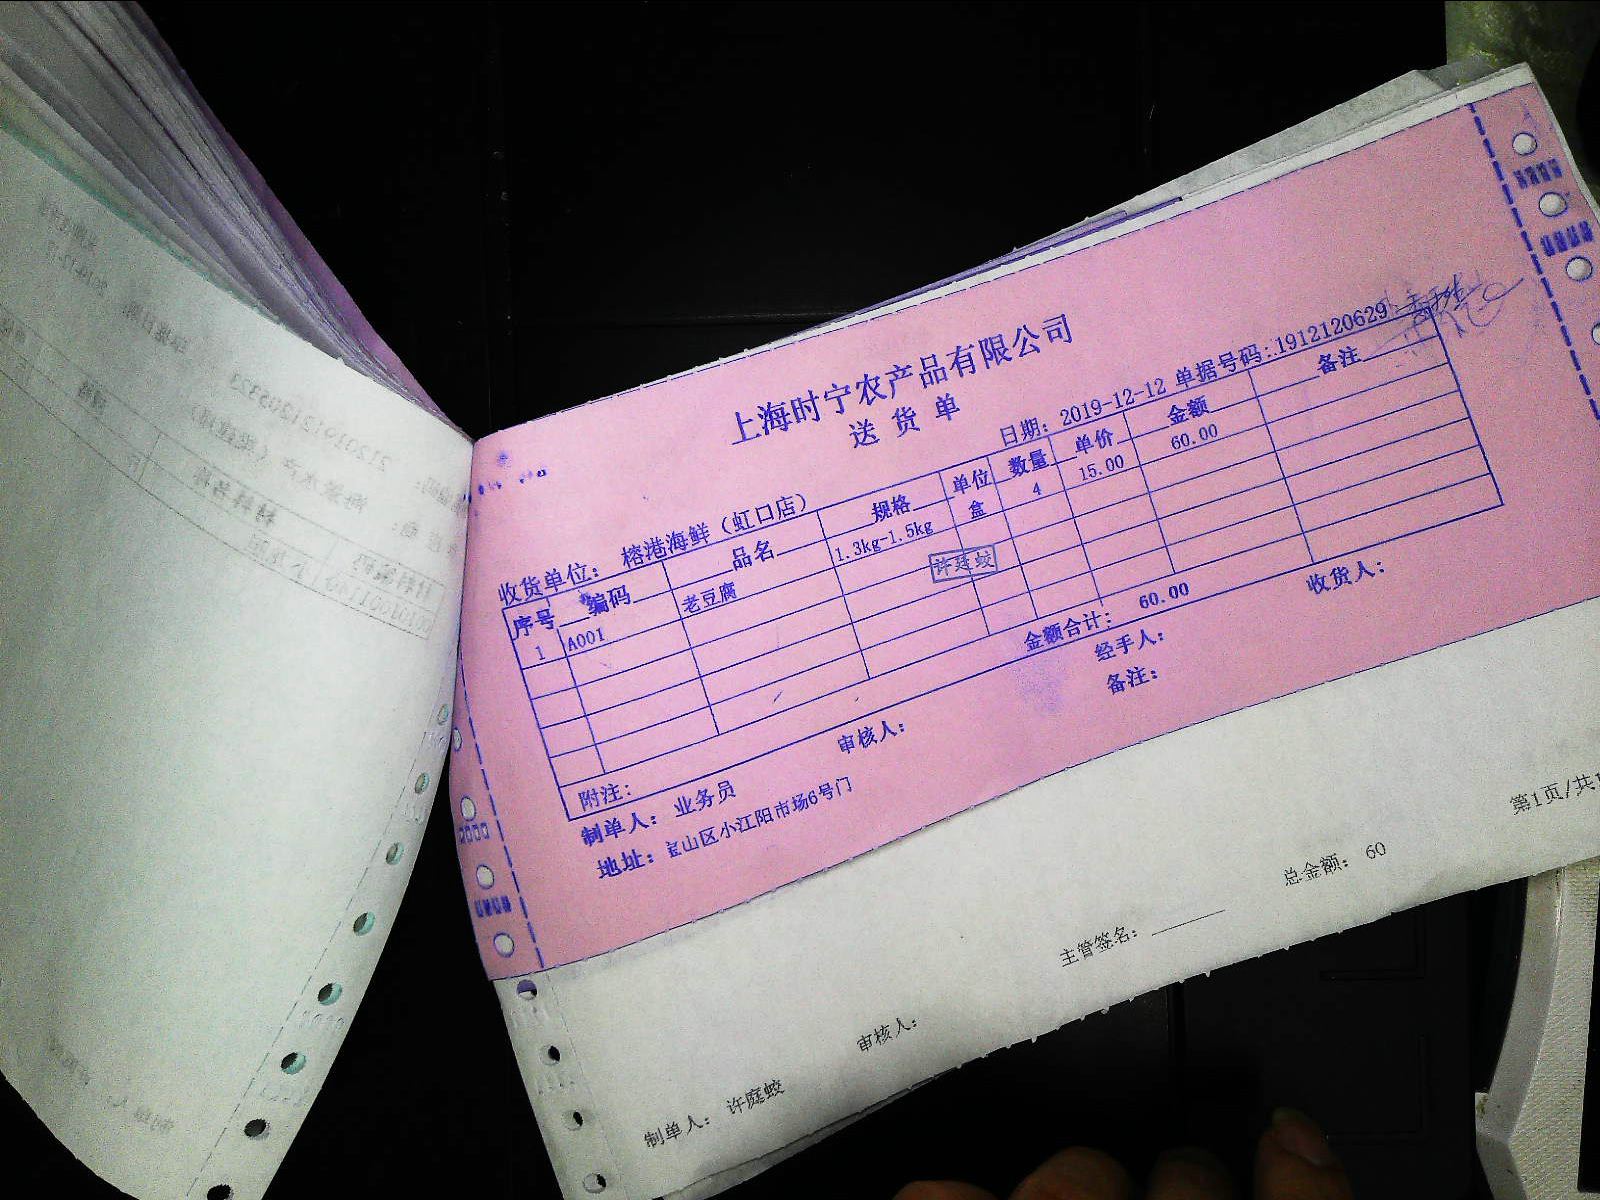 上海时宁农产品有限公司
送 货 单
收货单位： 榕港海鲜（虹口店） 日期： 2019-12-12 单据号码:1912120629
序号 编码 品名 规格 单位 数量 单价 金额 备注
1 A001 老豆腐 1.3kg-1.5kg 盒 4 15.00 60.00
许廷蛟
金额合计: 60.00
附注:
制单人: 业务员 审核人: 经手人: 收货人:
地址: 宝山区小江阳市场6号门 备注:
第1页/共1
制单人: 许庭蛟 审核人: 主管签名: 总金额: 60